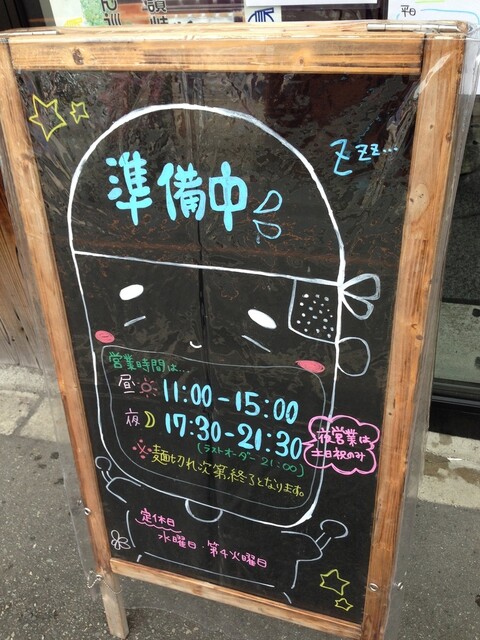 平日
Zzz...
準備中
営業時間は…
昼 11:00-15:00
夜 17:30-21:30
(ラストオーダー21:00)
夜営業は
土日祝のみ
※麺切れ次第終了となります。
定休日
水曜日・第4火曜日